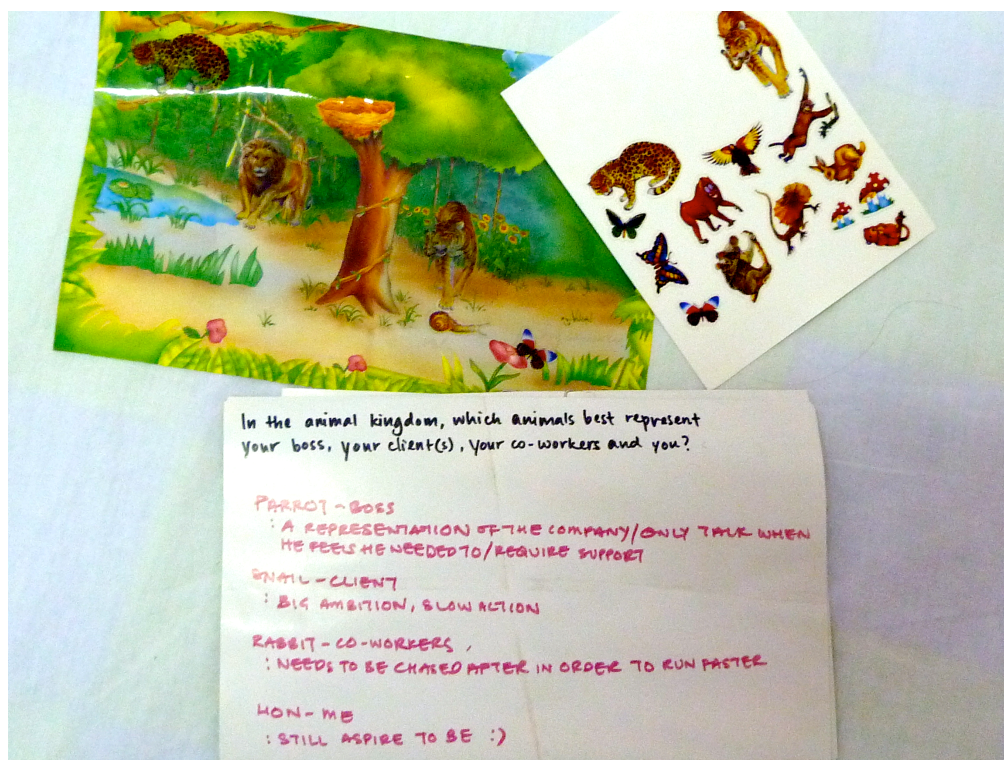 In the animal kingdom, which animals best represent
your boss, your client(s), your co-workers and you?
PARROT - BOSS
: A REPRESENTATION OF THE COMPANY/ONLY TALK WHEN
HE FEELS HE NEEDED TO/REQUIRE SUPPORT
SNAIL - CLIENT
: BIG AMBITION, SLOW ACTION
RABBIT - CO-WORKERS,
: NEEDS TO BE CHASED AFTER IN ORDER TO RUN FASTER
LION - ME
: STILL ASPIRE TO BE :)